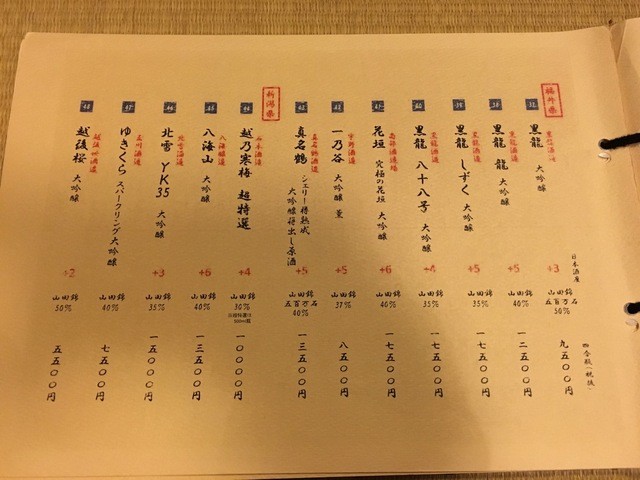 福井県
黒龍 大吟醸
黒龍酒造
+3
山田錦
五百万石
50%
九五〇〇円
日本酒度
四合瓶(税抜)
黒龍 龍 大吟醸
黒龍酒造
+5
山田錦
40%
一二五〇〇円
黒龍 しずく 大吟醸
黒龍酒造
+5
山田錦
35%
一七五〇〇円
黒龍 八十八号 大吟醸
黒龍酒造
+4
山田錦
35%
一七五〇〇円
花垣 究極の花垣 大吟醸
南部酒造場
+6
山田錦
40%
一七五〇〇円
一乃谷 大吟醸 菫
宇野酒造
+5
山田錦
37%
八五〇〇円
真名鶴 シェリー樽熟成
大吟醸樽出し原酒
真名鶴酒造
+5
山田錦
五百万石
40%
一三五〇〇円
新潟県
44
越乃寒梅 超特選
石本酒造
+4
山田錦
30%
500ml瓶
一〇〇〇〇円
八海山 大吟醸
八海醸造
+6
山田錦
40%
一三五〇〇円
北雪 YK35 大吟醸
北雪酒造
+3
山田錦
35%
一五〇〇〇円
47
ゆきくら スパークリング大吟醸
玉川酒造
山田錦
40%
七五〇〇円
48
越後桜 大吟醸
越後桜酒造
+2
山田錦
50%
五五〇〇円